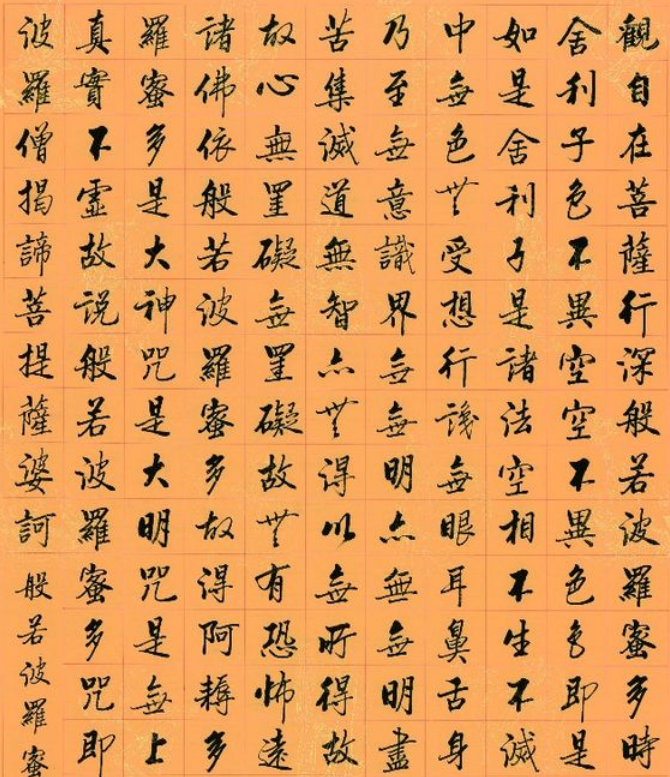 觀自在菩薩行深般若波羅蜜多時
舍利子色不異空空不異色色即是
如是舍利子是諸法空相不生不滅
中無色無受想行識無眼耳鼻舌身
乃至無意識界無無明亦無無明盡
苦集滅道無智亦無得以無所得故
故心無罣礙無罣礙故無有恐怖遠
諸佛依般若波羅蜜多故得阿耨多
羅蜜多是大神咒是大明咒是無上
真實不虛故說般若波羅蜜多咒即
波羅僧揭諦菩提薩婆訶 般若波羅蜜